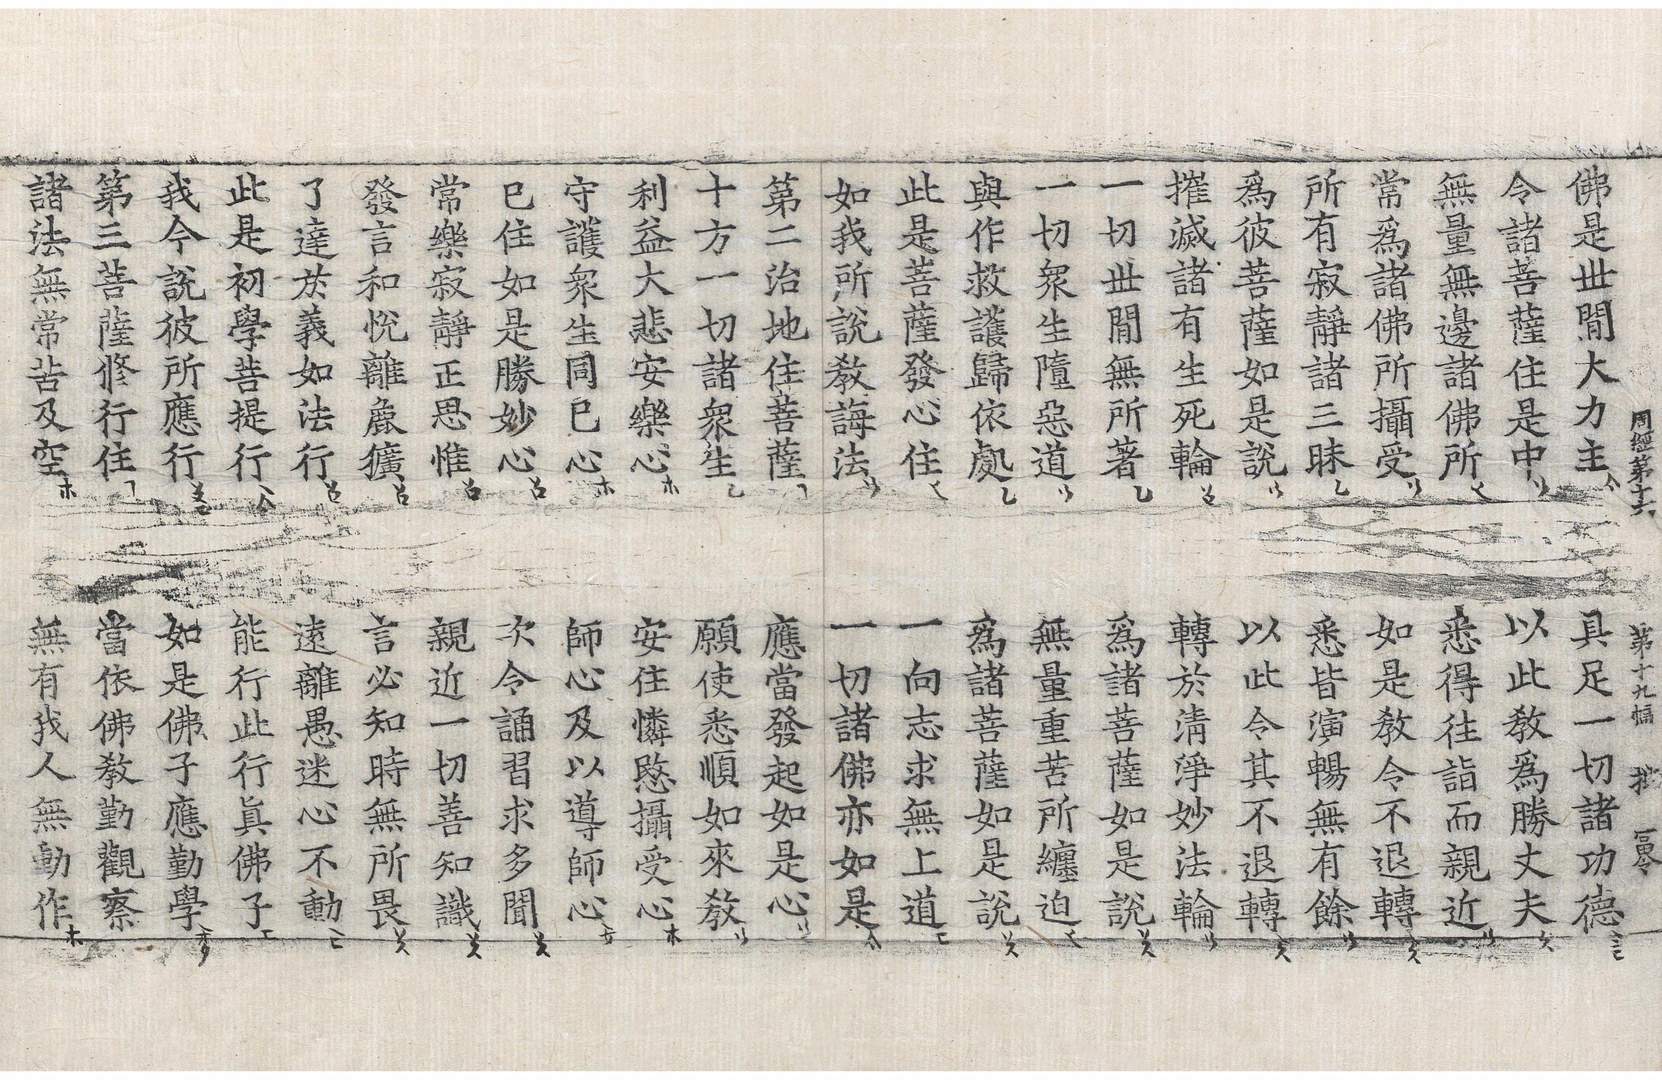 周經第十六 第十九幅
佛是世間大力主 具足一切諸功德
令諸菩薩住是中 以此教爲勝丈夫
無量無邊諸佛所 悉得往詣而親近
常爲諸佛所攝受 如是教令不退轉
所有寂靜諸三昧 悉皆演暢無有餘
爲彼菩薩如是說 以此令其不退轉
摧滅諸有生死輪 轉於清淨妙法輪
一切世間無所著 爲諸菩薩如是說
一切衆生墮惡道 無量重苦所纏迫
與作救護歸依處 爲諸菩薩如是說
此是菩薩發心住 一向志求無上道
如我所說教誨法 一切諸佛亦如是
第二治地住菩薩 應當發起如是心
十方一切諸衆生 願使悉順如來教
利益大悲安樂心 安住憐愍攝受心
守護衆生同已心 師心及以導師心
已住如是勝妙心 次令誦習求多聞
常樂寂靜正思惟 親近一切善知識
發言和悅離麁獷 言必知時無所畏
了達於義如法行 遠離愚迷心不動
此是初學菩提行 能行此行眞佛子
我今說彼所應行 如是佛子應勤學
第三菩薩修行住 當依佛教勤觀察
諸法無常苦及空 無有我人無動作